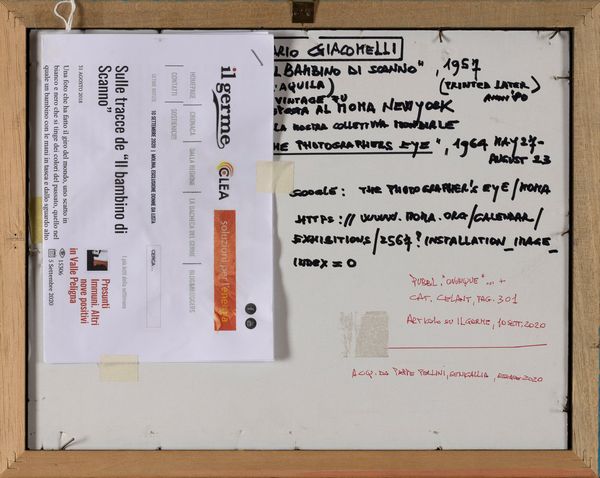 ARIO GIACOMELLI
L BAMBINO DI SCANNO", 1957
'AQUILA) (PRINTED LATER)
VINTAGE ANNI '80
AL MOMA NEW YORK
LA MOSTRA COLLETTIVA MONDIALE
HE PHOTOGRAPHERS EYE", 1964 MAY 27-
AUGUST 23
GOOGLE: THE PHOTOGRAPHER'S EYE/MOMA
HTTPS://WWW.MOMA.ORG/CALENDAR/
EXHIBITIONS/2567?INSTALLATION_IMAGE_
INDEX=0
PUBBL. "OVUNQUE"... +
CAT. CELANT, PAG. 301
ARTICOLO SU IL GERME, 10 SETT. 2020
ACQ. DA PEPPE PELLINI, SENIGALLIA, 2020
il germe
CLEA
soluzioni per l'energia
HOMEPAGE CRONACA DALLA REGIONE LA BACHECA DEL GERME BLOG&BLOGGERS
CONTATTI SOSTIENICI!!!
ULTIME NOTIZIE 10 SETTEMBRE 2020
CERCA...
Sulle tracce de "Il bambino di
Scanno"
31 AGOSTO 2018
Una foto che ha fatto il giro del mondo, uno scatto in
bianco e nero che si tinge dei colori del passato, quello nel
quale un bambino con le mani in tasca e dallo sguardo alto
I più letti della settimana
Presunti
immuni. Altri
nove positivi
in Valle Peligna
15506
5 Settembre 2020